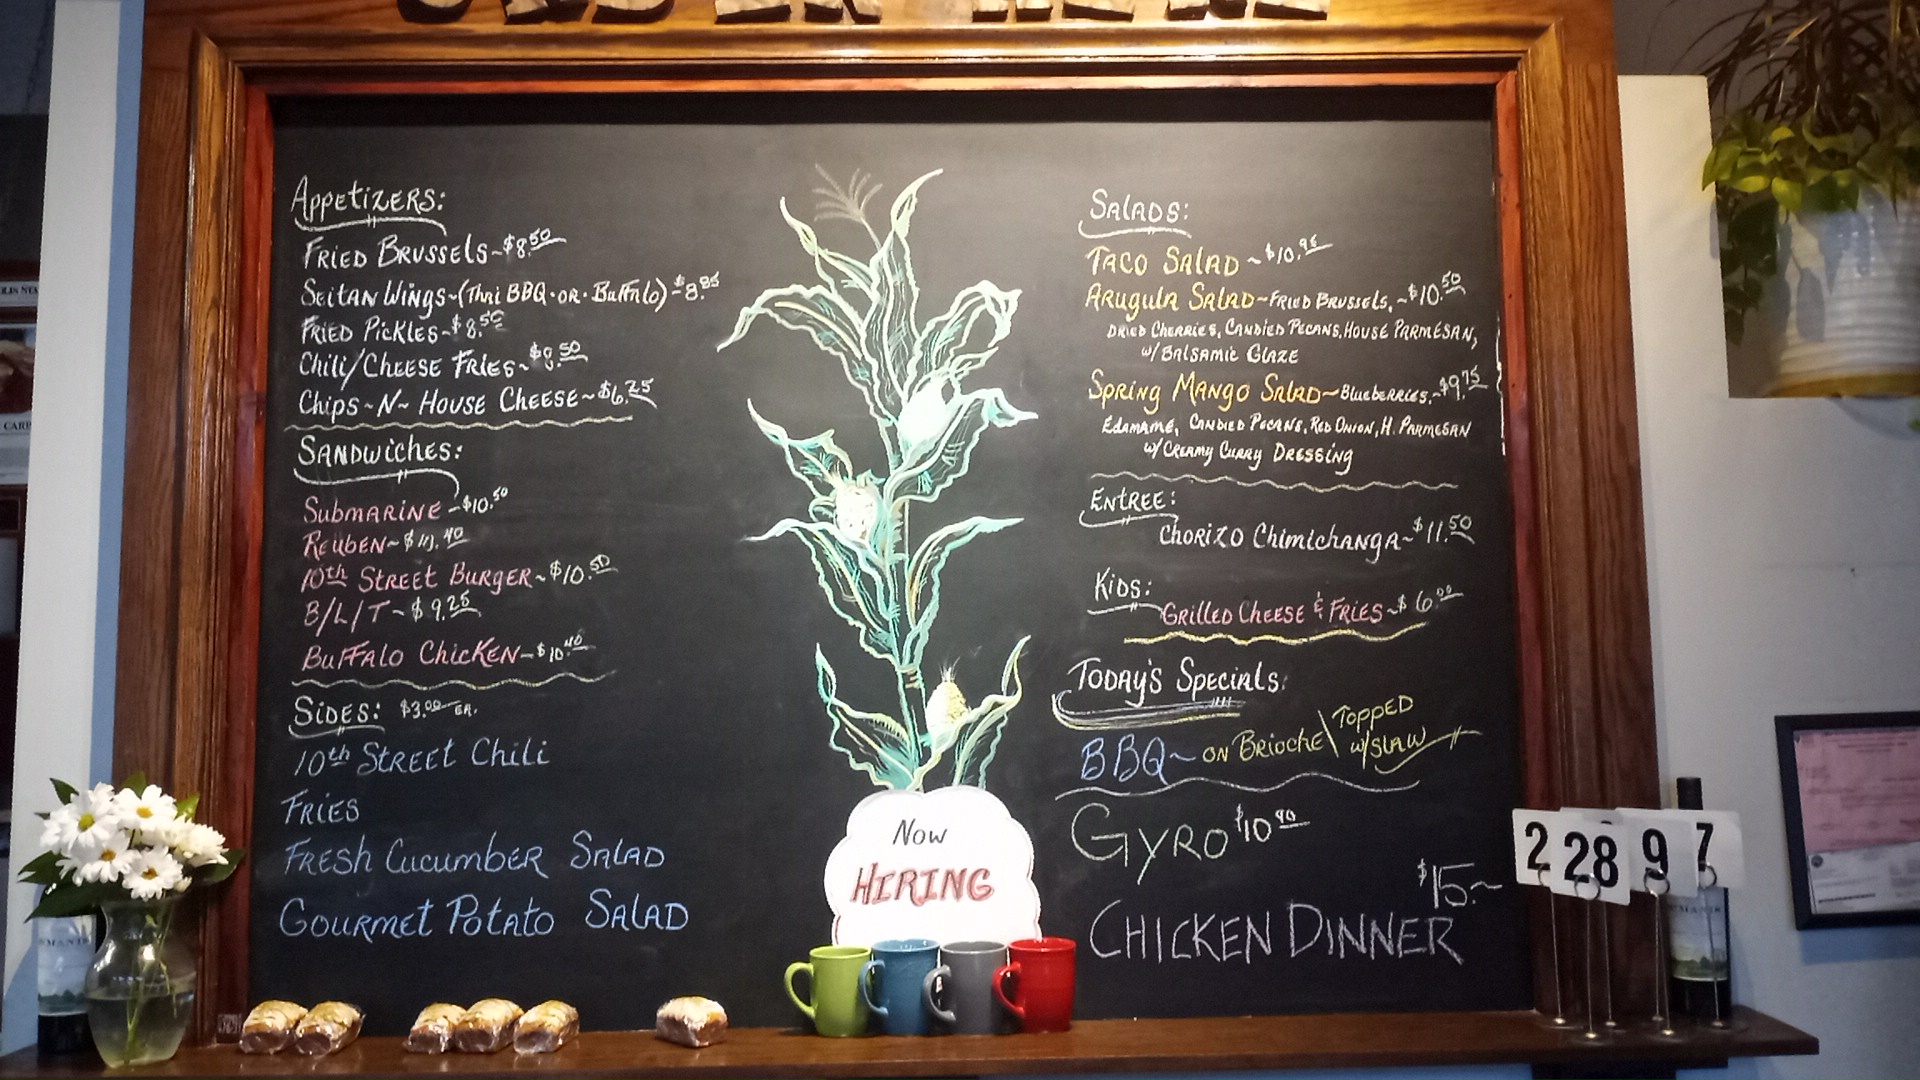 ORDER HERE
Appetizers:
Fried Brussels ~ $8.50
Seitan Wings ~ (Thai BBQ · or · Buffalo) ~ $8.85
Fried Pickles ~ $8.50
Chili/Cheese Fries ~ $8.50
Chips ~ N ~ House Cheese ~ $6.25
Sandwiches:
Submarine ~ $10.50
Reuben ~
10th Street Burger ~ $10.50
B/L/T ~ $9.25
Buffalo Chicken ~ $10.40
Sides: $3.00 ea.
10th Street Chili
Fries
Fresh Cucumber Salad
Gourmet Potato Salad
Now
HIRING
Salads:
Taco Salad ~ $10.95
Arugula Salad ~ Fried Brussels, ~ $10.50
Dried Cherries, Candied Pecans, House Parmesan,
w/ Balsamic Glaze
Spring Mango Salad ~ Blueberries, ~ $9.75
Edamame, Candied Pecans, Red Onion, H. Parmesan
w/ Creamy Curry Dressing
Entree:
Chorizo Chimichanga ~ $11.50
Kids:
Grilled Cheese & Fries ~ $6.00
Today's Specials:
BBQ ~ on Brioche \ Topped
w/ Slaw
Gyro $10.90
$15.~
Chicken Dinner
2 28 9 7